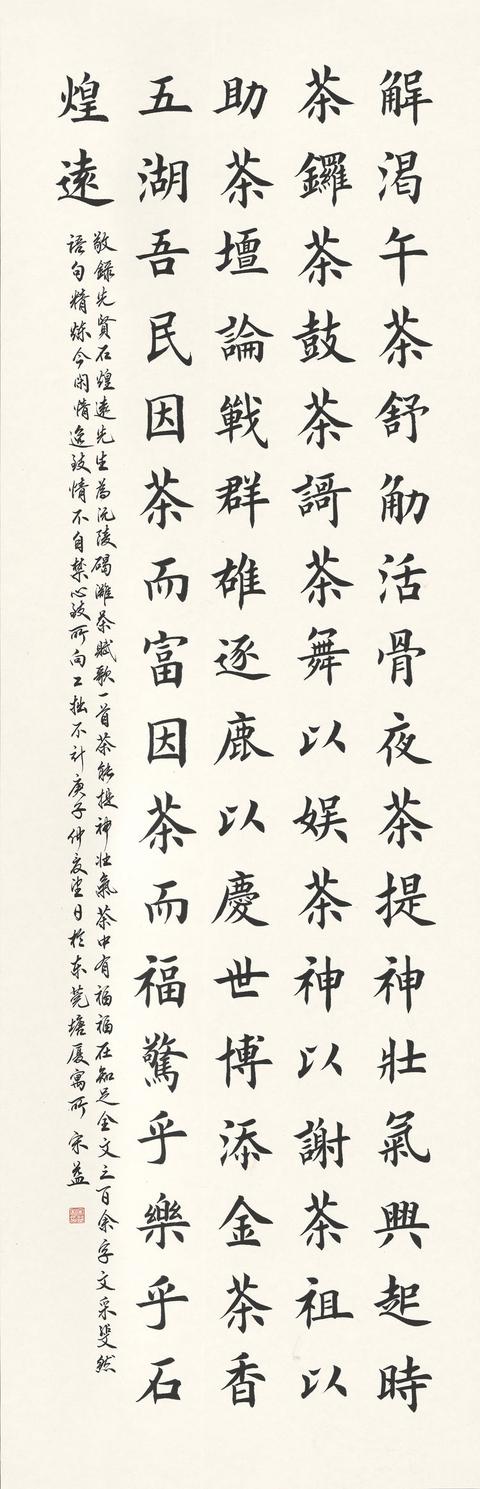 解渴午茶舒觔活骨夜茶提神壯氣興起時
茶鑼茶鼓茶謌茶舞以娛茶神以謝茶祖以
助茶壇論戰群雄逐鹿以慶世博添金茶香
五湖吾民因茶而富因茶而福驚乎樂乎石
煌遠
敬錄先賢石煌遠先生為沅陵碣灘茶賦歌一首茶能提神壯氣茶中有福福在知足全文三百余字文采斐然
語句精炼今闲情逸致情不自禁心致所向工拙不计庚子仲夏望日於东莞塘厦寓所 宋益